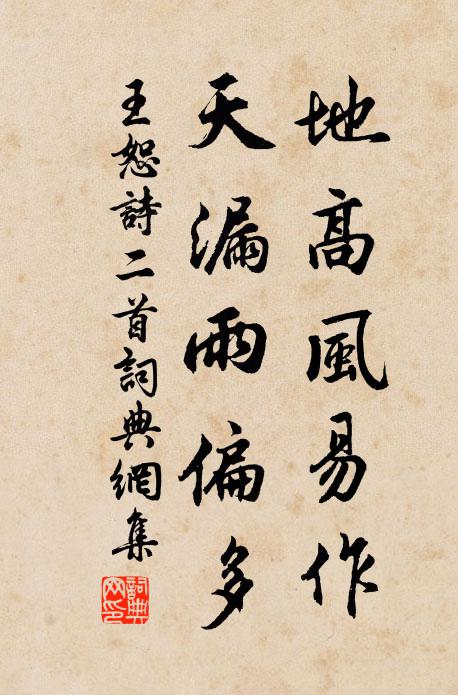 地高風易作
天漏雨偏多
王恕詩二首詞典網集
詞典
网印